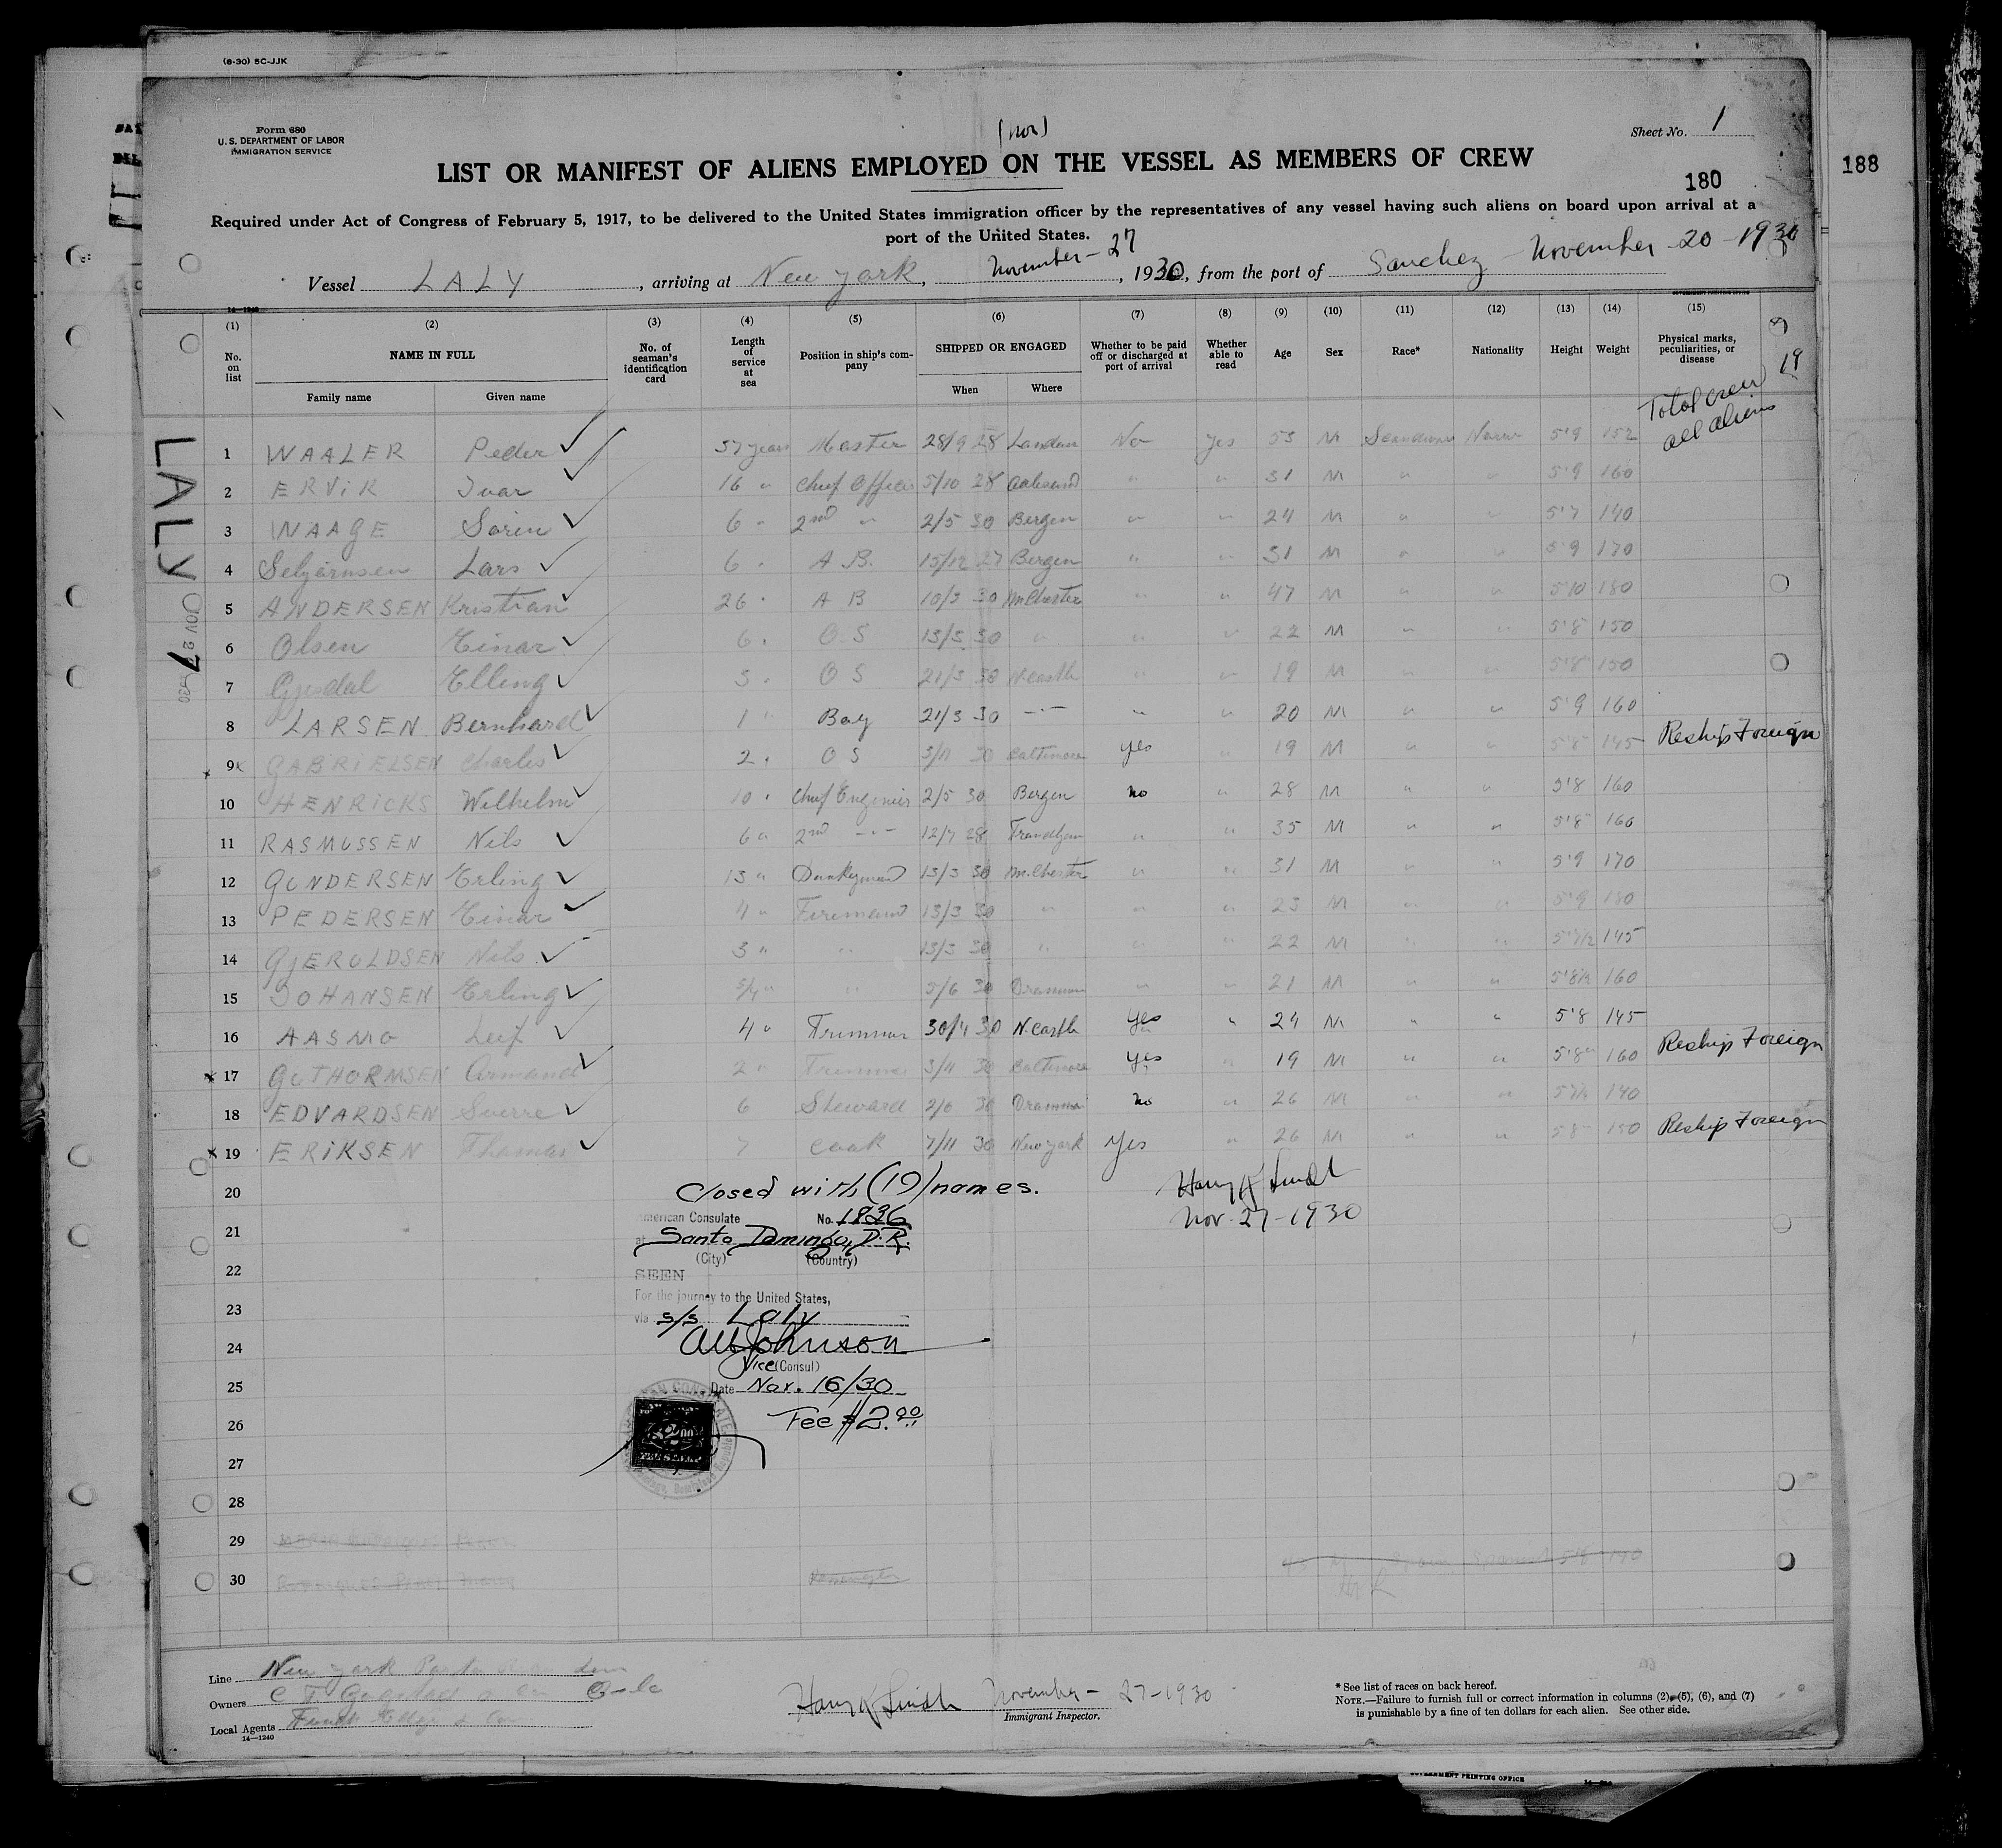 (6-30) 5C-JJK
Form 680
U. S. DEPARTMENT OF LABOR
IMMIGRATION SERVICE
(nor)
Sheet No. 1
LIST OR MANIFEST OF ALIENS EMPLOYED ON THE VESSEL AS MEMBERS OF CREW
180
188
Required under Act of Congress of February 5, 1917, to be delivered to the United States immigration officer by the representatives of any vessel having such aliens on board upon arrival at a
port of the United States.
Vessel LALY, arriving at New York, November-27, 1930, from the port of Sanchez November-20-1930
14-1240
(1) (2) (3) (4) (5) (6) (7) (8) (9) (10) (11) (12) (13) (14) (15)
No. on list NAME IN FULL No. of seaman's identification card Length of service at sea Position in ship's company SHIPPED OR ENGAGED Whether to be paid off or discharged at port of arrival Whether able to read Age Sex Race* Nationality Height Weight Physical marks, peculiarities, or disease
19
Family name Given name When Where
Total crew
all aliens
LALY
NOV 27 1930
1 WAALER Peder 37 years Master 28/9 28 London No Yes 53 M 5'9 152
2 ERVIK Ivar 16 " Chief Officer 5/10 28 Aalesund " " 31 M " " 5'9 160
3 WAAGE Sorin 6 " 2nd " 2/5 30 Bergen " " 24 M " " 5'7 140
4 Lars 6 " A B. 15/12 27 Bergen " " 31 M " " 5'9 170
5 ANDERSEN Kristian 26 " A B 10/3 30 M.Chester " " 47 M " " 5'10 180
6 Olsen Einar 6 " O.S 13/3 30 " " " 22 M " " 5'8 150
7 Gjesdal Elling 3 " O S 21/3 30 N.Castle " " 19 M " " 5'8 150
8 LARSEN Bernhard 1 " Boy 21/3 30 -"- " " 20 M " " 5'9 160
9x GABRIELSEN Charles 2 " O S 3/11 30 Baltimore Yes " 19 M " " 5'8 145 Reship Foreign
10 HENRICKS Wilhelm 10 " Chief Engineer 2/5 30 Bergen no " 28 M " " 5'8 160
11 RASMUSSEN Nils 6 " 2nd -"- 12/7 28 " " 35 M " " 5'8 160
12 GUNDERSEN Erling 13 " Donkeyman 13/3 30 M.Chester " " 31 M " " 5'9 170
13 PEDERSEN Einar 4 " Firemand 13/3 30 " " " 23 M " " 5'9 180
14 GJEROLDSEN Nils 3 " " 13/3 30 " " " 22 M " " 5'7½ 145
15 JOHANSEN Erling " " 5/6 30 Drammen " " 21 M " " 5'8½ 160
16 AASMO Leif 4 " Trimmer 30/4 30 N.Castle Yes " 24 M " " 5'8 145
x 17 GUTHORMSEN Armand 2 " Trimmer 3/11 30 Baltimore Yes " 19 M " " 5'8 160 Reship Foreign
18 EDVARDSEN Sverre 6 Steward 2/6 30 Drammen no " 26 M " " 5'7½ 140
x 19 ERIKSEN Thomas 7 Cook 7/11 30 New York Yes " 26 M " " 5'8 150 Reship Foreign
20 Closed with (19) names.
Nov. 27-1930
American Consulate No. 1836
21 at Santo Domingo, D.R.
(City) (Country)
22 SEEN
For the journey to the United States,
23 via s/s Laly
24 Johnson
Vice (Consul)
25 Date Nov. 16/30
26 Fee $2.00
27
28
29
30
Line New York
Owners
Local Agents
14-1240
November- 27-1930
Immigrant Inspector.
* See list of races on back hereof.
NOTE.—Failure to furnish full or correct information in columns (2), (5), (6), and (7)
is punishable by a fine of ten dollars for each alien. See other side.
GOVERNMENT PRINTING OFFICE